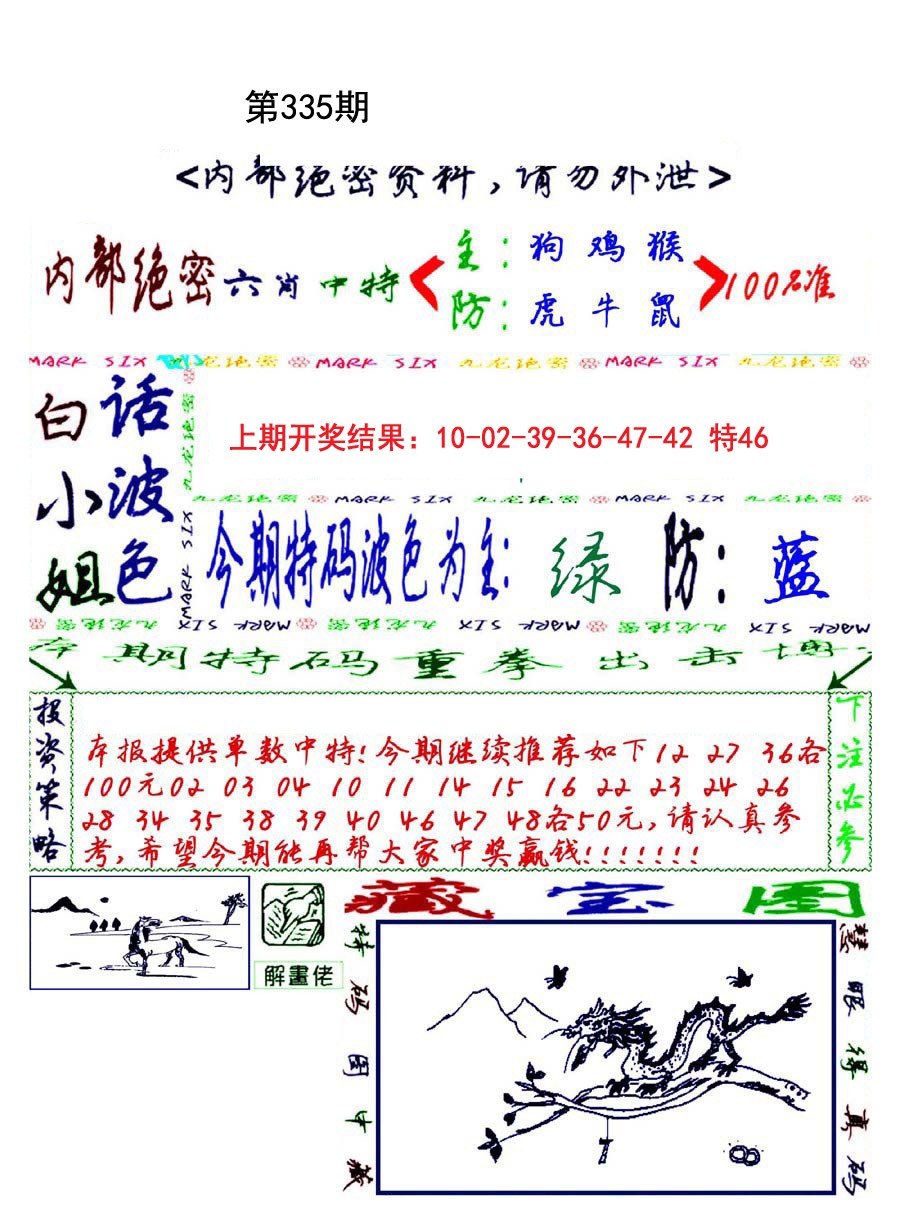 第335期
<内部绝密资料,请勿外泄>
内部绝密六肖中特
主:狗鸡猴
防:虎牛鼠
100%准
MARK SIX 九龙绝密 MARK SIX 九龙绝密 MARK SIX 九龙绝密
白小姐
话波色
九龙绝密
MARK SIX
上期开奖结果：10-02-39-36-47-42 特46
九龙绝密 MARK SIX 九龙绝密 MARK SIX 九龙绝密
今期特码波色为主:绿 防:蓝
九龙绝密 MARK SIX 九龙绝密 MARK SIX 九龙绝密 MARK SIX
本期特码重拳出击
投资策略
本报提供单数中特!今期继续推荐如下12 27 36各
100元02 03 04 10 11 14 15 16 22 23 24 26
28 34 35 38 39 40 46 47 48各50元,请认真参
考,希望今期能再帮大家中奖赢钱!!!!!!!
下注必参
解畫佬
藏宝图
特码图中藏
慧眼得真码